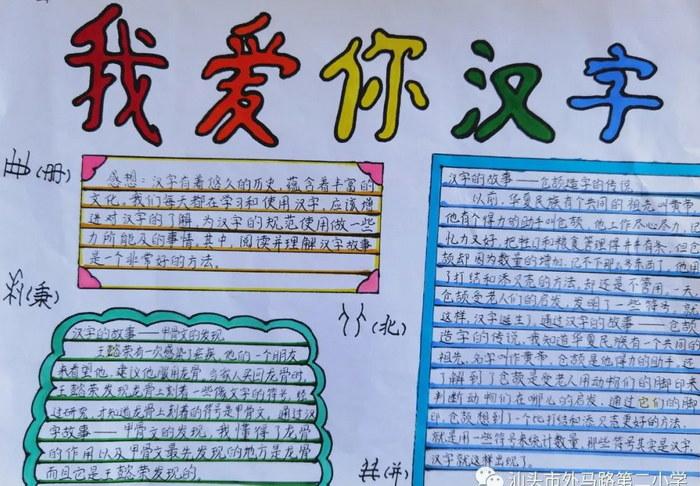 我爱你汉字
(册)
感想:汉字有着悠久的历史,蕴含着丰富的
文化。我们每天都在学习和使用汉字,应该增
进对汉字的了解,为汉字的规范使用做一些
力所能及的事情。其中,阅读并理解汉字故事
是一个非常好的方法。
(秉)
(北)
汉字的故事——甲骨文的发现
王懿荣有一次感染了疟疾,他的一个朋友
来看望他,建议他服用龙骨。当家人买回龙骨时,
王懿荣发现龙骨上刻着一些像文字的符号,经
过研究,才知道龙骨上刻着的符号是甲骨文。通过汉
字故事——甲骨文的发现,我懂得了龙骨
的作用以及甲骨文最先发现的地方是龙骨
而且它是王懿荣发现的。
(并)
汉字的故事——仓颉造字的传说
以前,华夏民族有个共同的祖先叫黄帝,
他有个得力的助手叫仓颉,他工作尽心尽力,记
忆力又好,把牲口和粮食管理得井井有条,但仓
颉却因为数量的增加,记不下那么多东西了,他用
了打结和添贝壳的方法,却还是不管用,一天
仓颉受老人们的启发,发明了一些符号,就
这样,汉字诞生了,通过汉字的故事——仓颉
造字的传说,我知道华夏民族有个共同的
祖先,名字叫作黄帝,仓颉是他得力的助手,还
了解到了仓颉是受老人用动物们的脚印来
判断动物们在哪儿的启发,通过它们的脚
印,仓颉想到了一个比打结和添贝壳更好的方法,
就是用一些符号来统计数量,那些符号其实是汉字,
汉字就这样出现了。
汕头市外马路第二小学